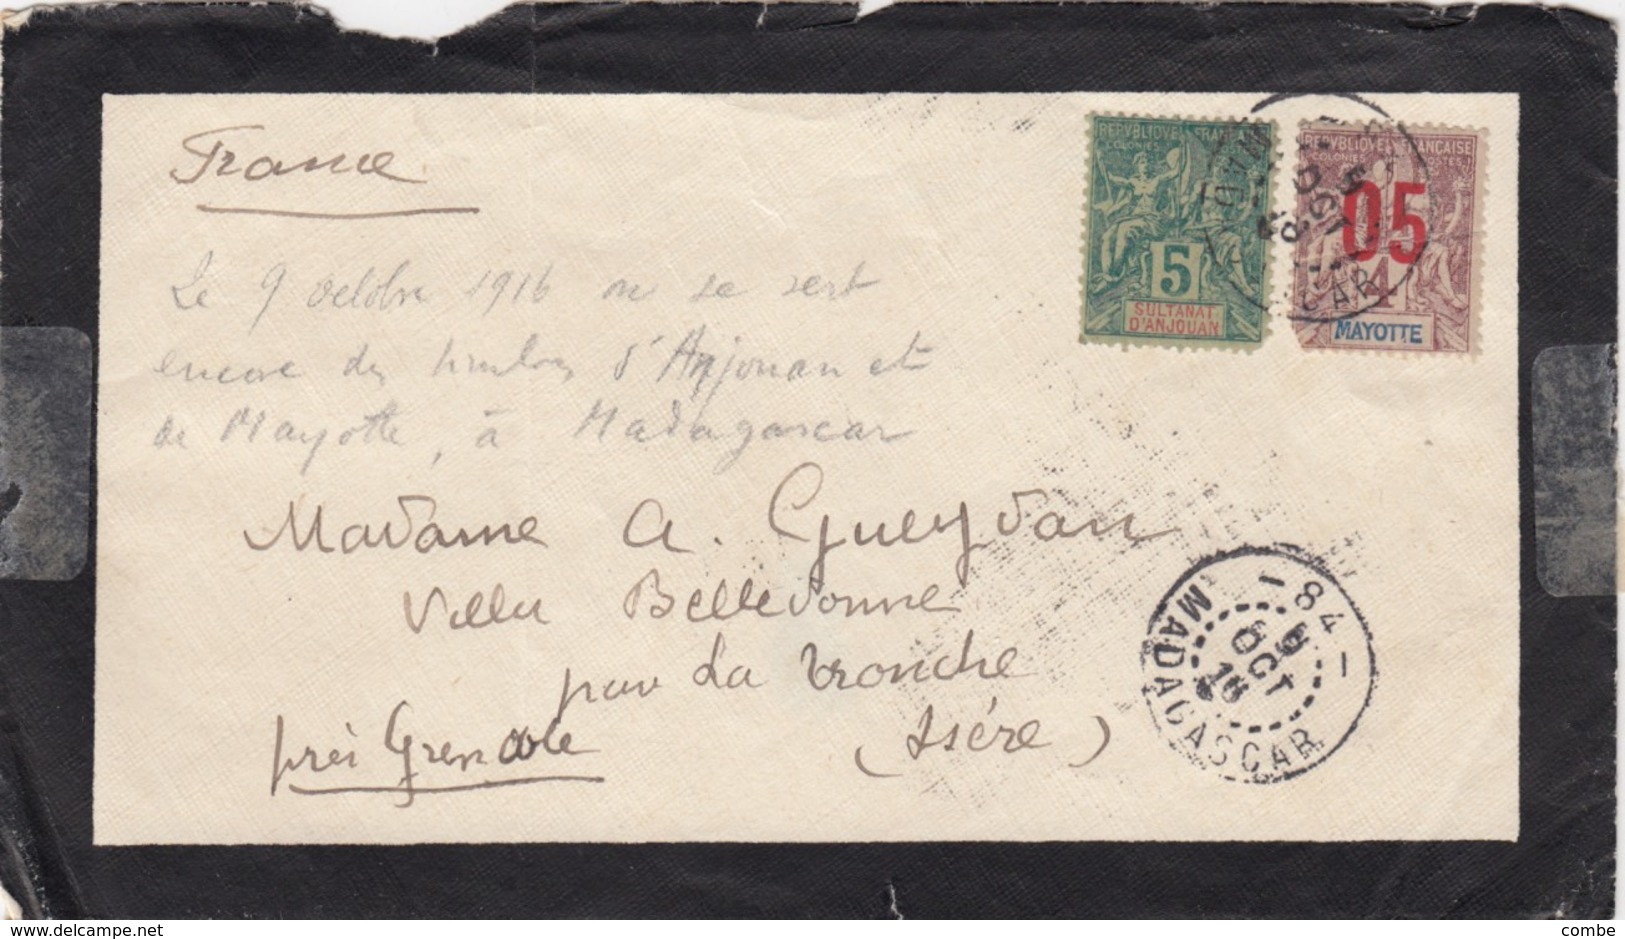 France
REPVBLIQVE FRANÇAISE
COLONIES
5
SULTANAT
D'ANJOUAN
REPVBLIQVE FRANÇAISE
COLONIES POSTES
05
4
MAYOTTE
5
OCT
Le 9 octobre 1916 on se sert
encore des timbres d'Anjouan et
de Mayotte, à Madagascar
Madame A. Gueydan
Villa Belledonne
par La Tronche
près Grenoble (Isère)
84
9
OCT
16
MADAGASCAR
www.delcampe.net
combe